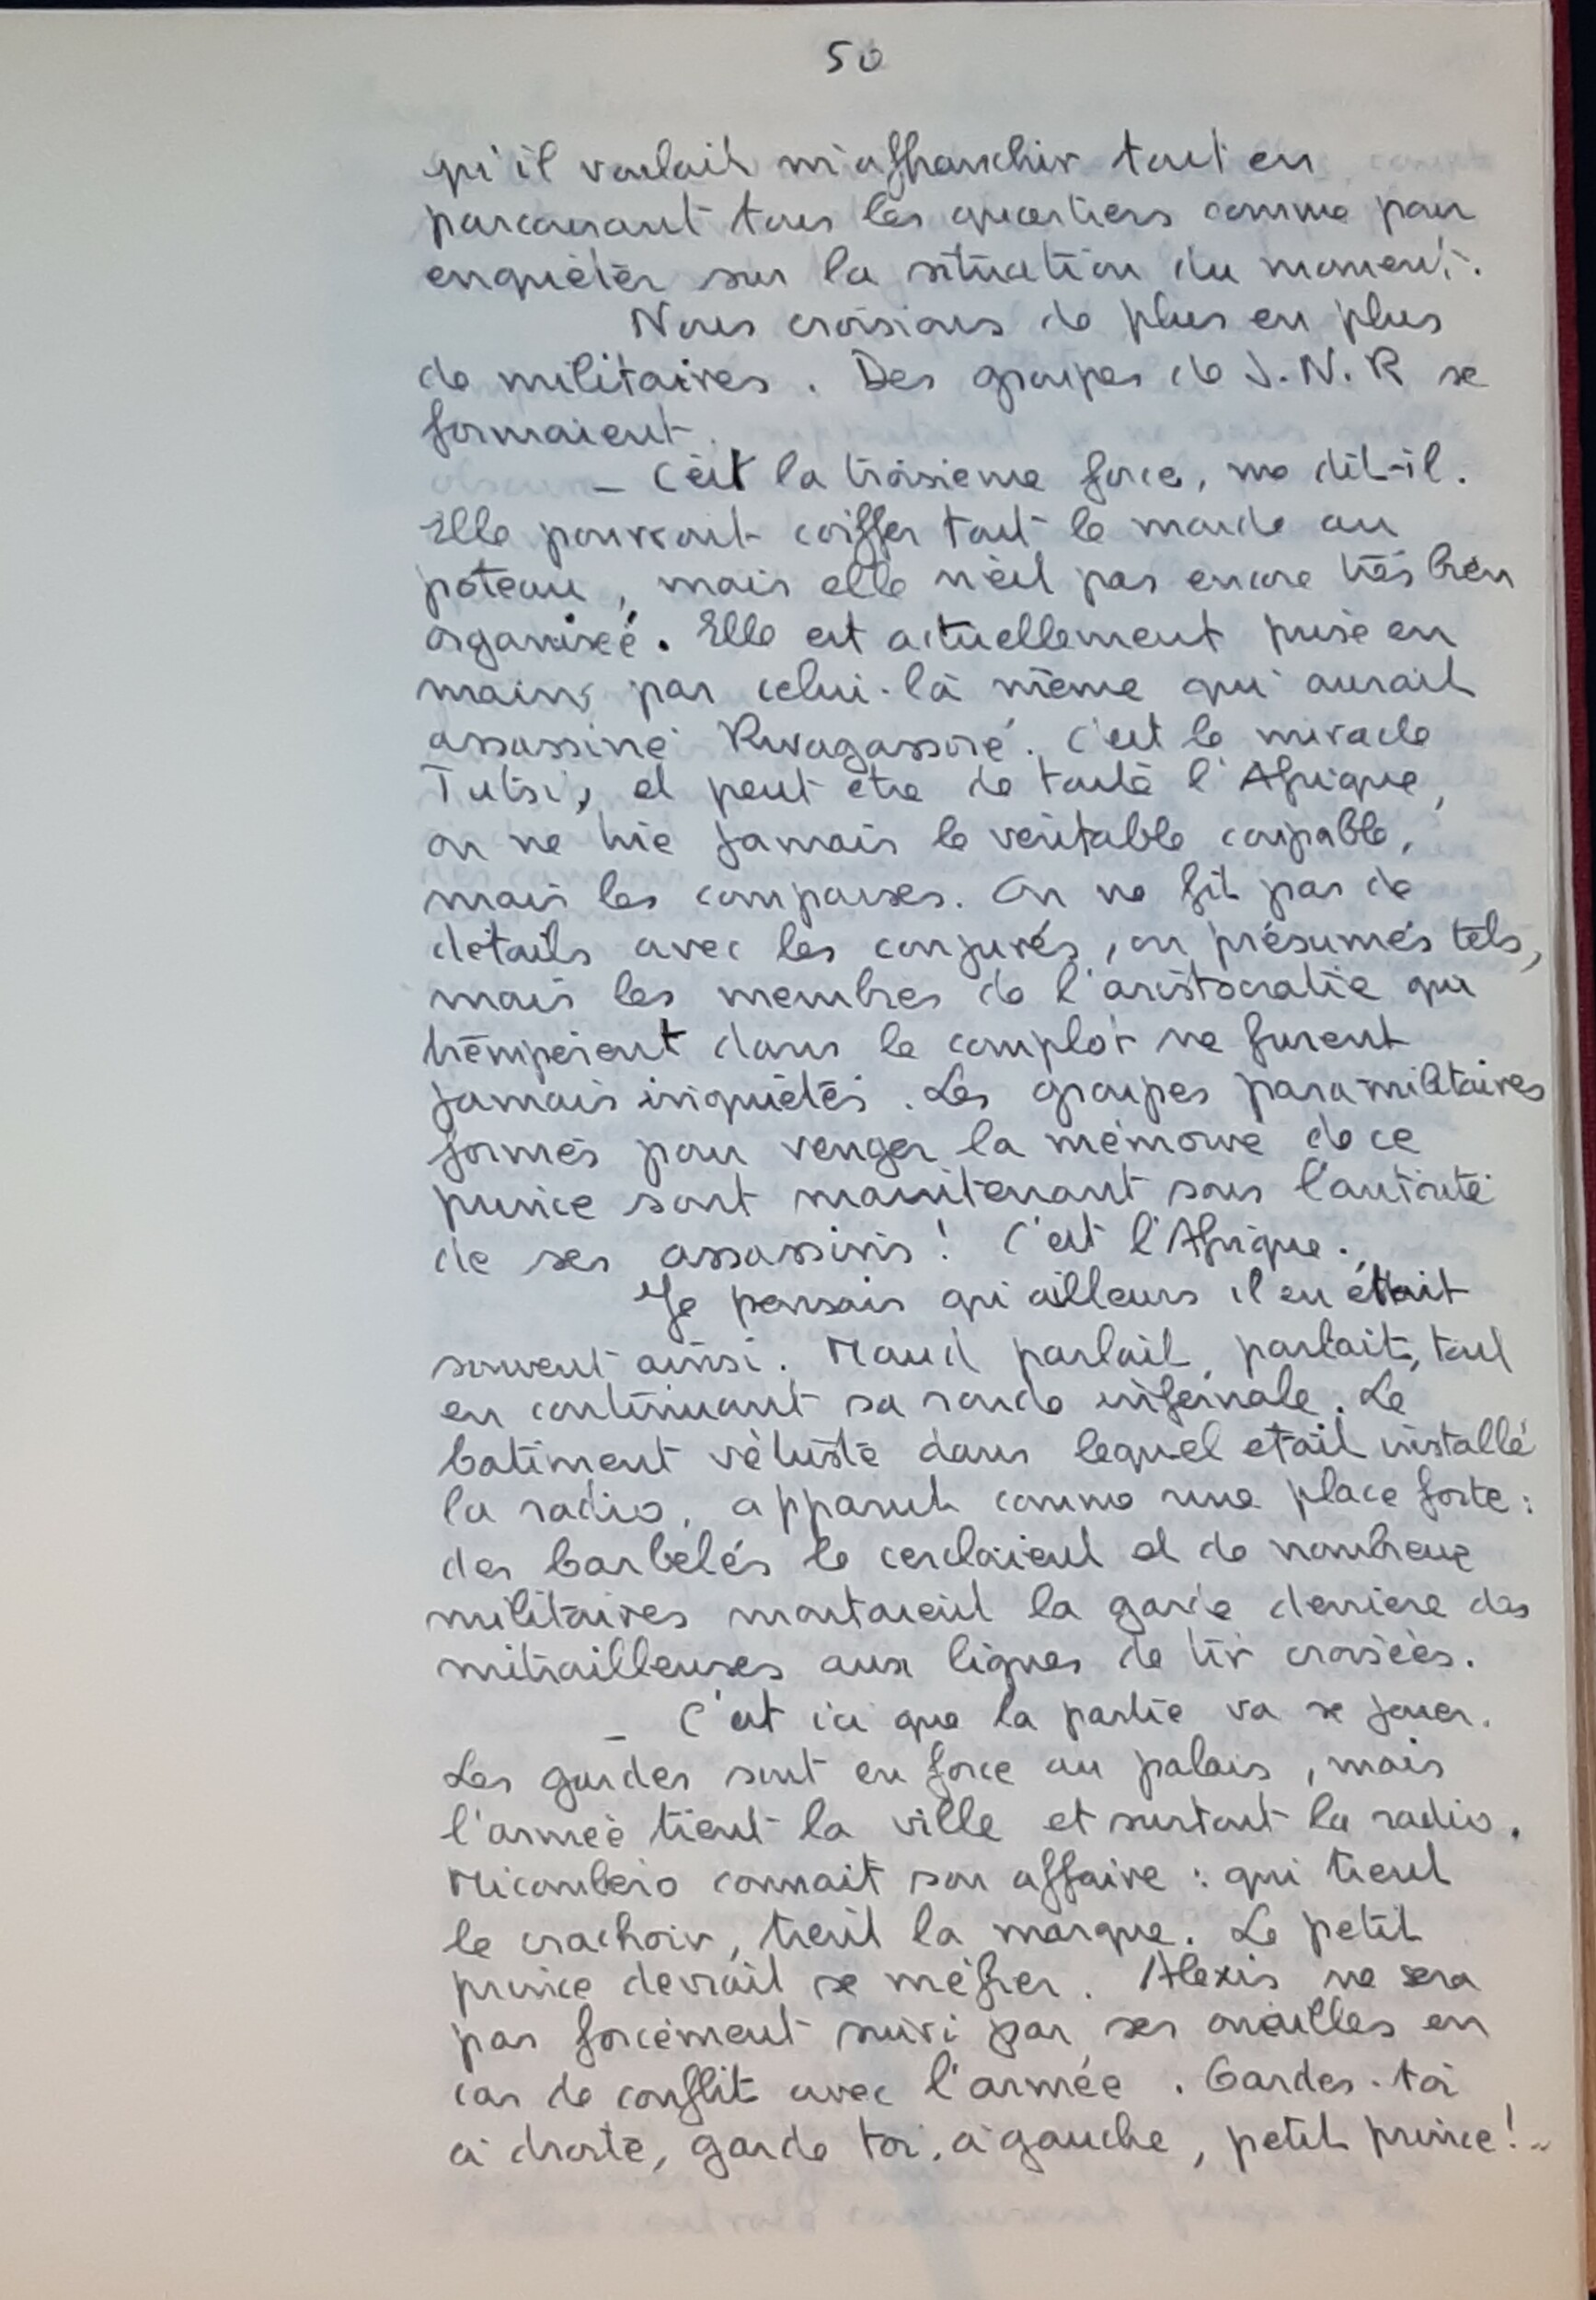 50
qu'il voulait m'affranchir tout en
parcourant tous les quartiers comme pour
enquêter sur la situation du moment.
Nous croisions de plus en plus
de militaires. Des groupes de J.N.R se
formaient.
_ C'est la troisième force, me dit-il.
Elle pourrait coiffer tout le monde au
poteau, mais elle n'est pas encore très bien
organisée. Elle est actuellement prise en
main, par celui-là même qui aurait
assassiné Rwagassoré. C'est le miracle
Tutsi, et peut être de toute l'Afrique,
on ne tue jamais le véritable coupable,
mais les comparses. On ne fit pas de
détails avec les conjurés, ou présumés tels,
mais les membres de l'aristocratie qui
trempèrent dans le complot ne furent
jamais inquiétés. Les groupes paramilitaires
formés pour venger la mémoire de ce
prince sont maintenant sous l'autorité
de ses assassins! C'est l'Afrique.
Je pensais qu'ailleurs il en était
souvent ainsi. Maud parlait, parlait, tout
en continuant sa ronde infernale. Le
batiment vétuste dans lequel était installé
la radio, apparut comme une place forte:
des barbelés le cerclaient et de nombreux
militaires montaient la garde derriere des
mitrailleuses aux lignes de tir croisées.
_ C'est ici que la partie va se jouer.
Les gardes sont en force au palais, mais
l'armée tient la ville et surtout la radio.
Micombero connait son affaire : qui tient
le crachoir, tient la marque. Le petit
prince devrait se méfier. Alexis ne sera
pas forcément suivi par ses ouailles en
cas de conflit avec l'armée. Gardes-toi
à droite, garde toi, à gauche, petit prince!..